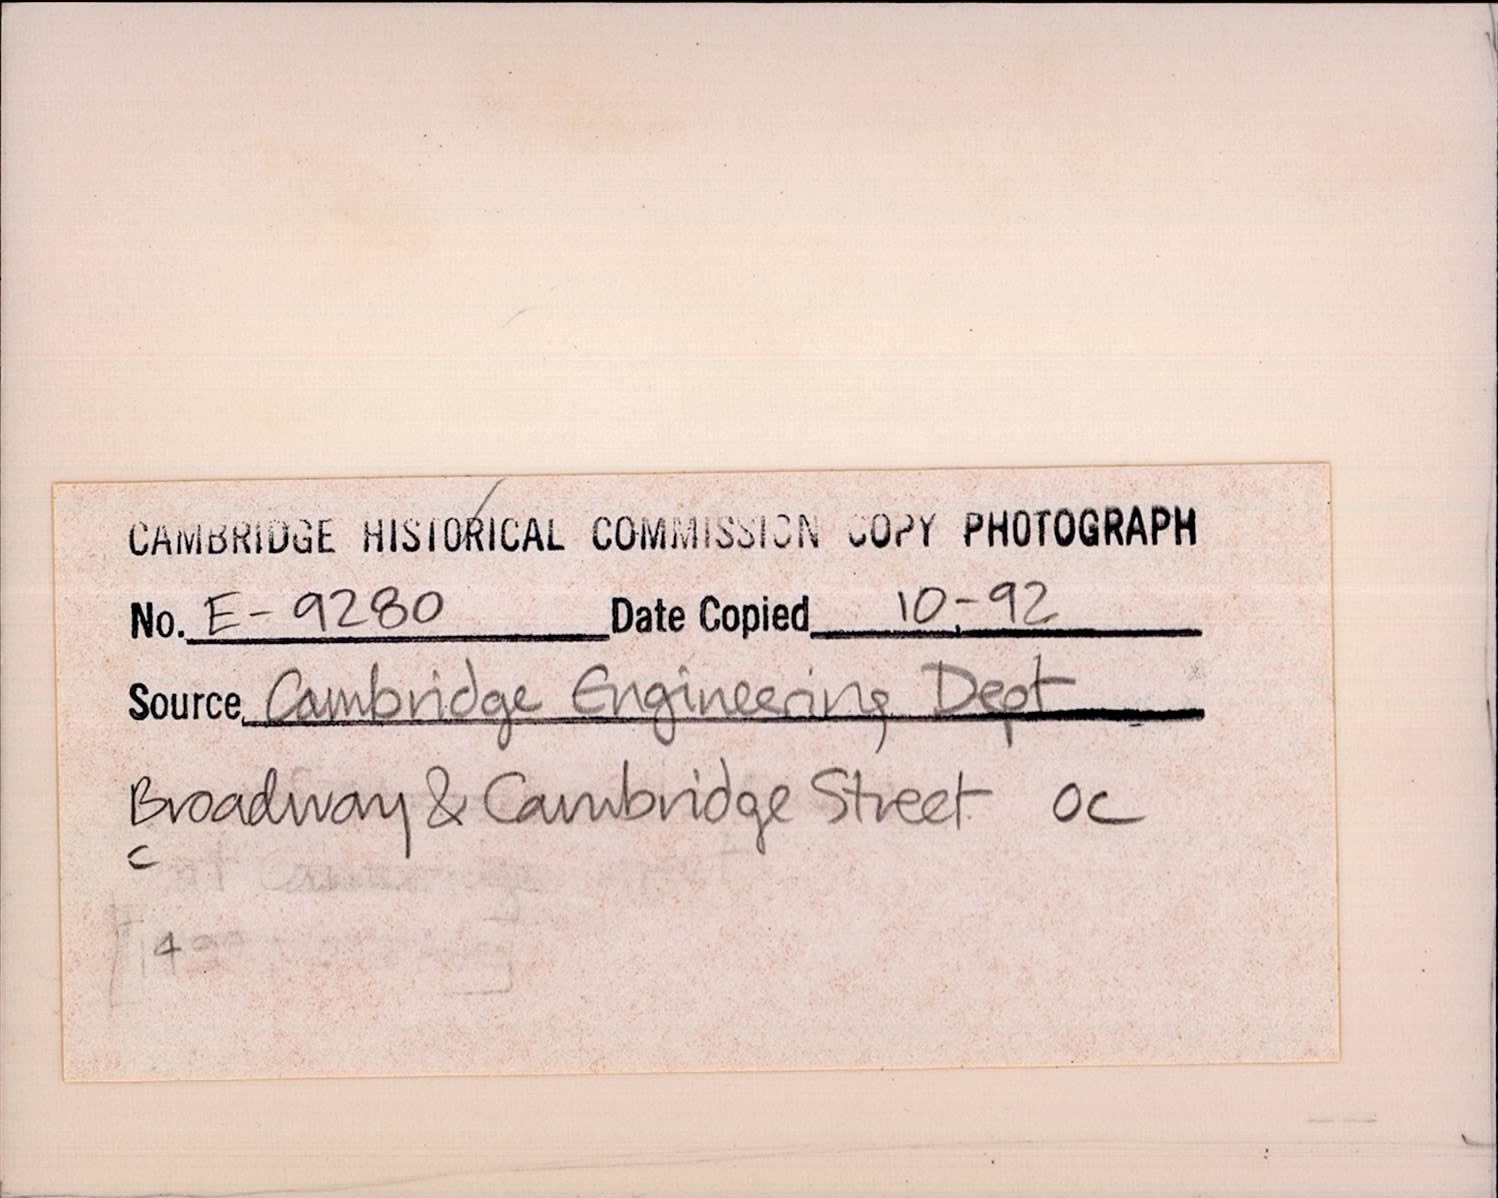 CAMBRIDGE HISTORICAL COMMISSION COPY PHOTOGRAPH
No. E-9280 Date Copied 10-92
Source Cambridge Engineering Dept
Broadway & Cambridge Street OC
C